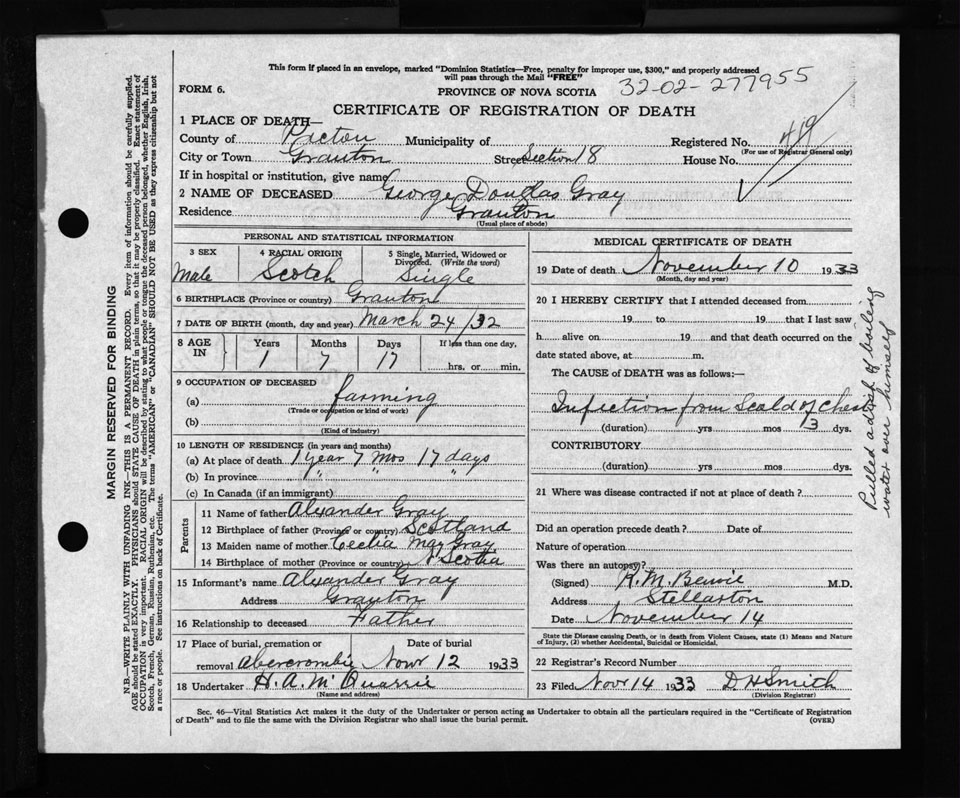 This form if placed in an envelope, marked "Dominion Statistics—Free, penalty for improper use, $300," and properly addressed
will pass through the Mail "FREE"
FORM 6.
PROVINCE OF NOVA SCOTIA
32-02-277955
CERTIFICATE OF REGISTRATION OF DEATH
1 PLACE OF DEATH—
County of Pictou Municipality of Registered No. 419
(For use of Registrar General only)
City or Town Granton Street Section 18 House No.
If in hospital or institution, give name
2 NAME OF DECEASED George Douglas Gray
Residence Granton
(Usual place of abode)
PERSONAL AND STATISTICAL INFORMATION
3 SEX 4 RACIAL ORIGIN 5 Single, Married, Widowed or
Divorced. (Write the word)
Male Scotch Single
6 BIRTHPLACE (Province or country) Granton
7 DATE OF BIRTH (month, day and year) March 24/32
8 AGE IN Years Months Days If less than one day,
1 7 17 hrs. or min.
9 OCCUPATION OF DECEASED
(a) farming
(Trade or occupation or kind of work)
(b)
(Kind of industry)
10 LENGTH OF RESIDENCE (in years and months)
(a) At place of death 1 year 7 mos 17 days
(b) In province " " "
(c) In Canada (if an immigrant)
Parents
11 Name of father Alexander Gray
12 Birthplace of father (Province or country) Scotland
13 Maiden name of mother Cecelia May Gray
14 Birthplace of mother (Province or country) N Scotia
15 Informant's name Alexander Gray
Address Granton
16 Relationship to deceased Father
17 Place of burial, cremation or Date of burial
removal Abercrombie Novr 12 1933
18 Undertaker H. A. McQuarrie
(Name and address)
MEDICAL CERTIFICATE OF DEATH
19 Date of death November 10 1933
(Month, day and year)
20 I HEREBY CERTIFY that I attended deceased from
19 to 19 that I last saw
h alive on 19 and that death occurred on the
date stated above, at m.
The CAUSE of DEATH was as follows:—
Infection from Scald of Chest
(duration) yrs mos 13 dys.
CONTRIBUTORY
(duration) yrs mos dys.
21 Where was disease contracted if not at place of death?
Did an operation precede death? Date of
Nature of operation
Was there an autopsy?
(Signed) M.D.
Address Stellarton
Date November 14
State the Disease causing Death, or in death from Violent Causes, state (1) Means and Nature
of Injury, (2) whether Accidental, Suicidal or Homicidal.
22 Registrar's Record Number
23 Filed Novr 14 1933 D. H Smith
(Division Registrar)
Sec. 46—Vital Statistics Act makes it the duty of the Undertaker or person acting as Undertaker to obtain all the particulars required in the "Certificate of Registration
of Death" and to file the same with the Division Registrar who shall issue the burial permit.
(OVER)
Pulled a dish of boiling
water over himself
MARGIN RESERVED FOR BINDING
N.B.—WRITE PLAINLY WITH UNFADING INK—THIS IS A PERMANENT RECORD. Every item of information should be carefully supplied.
AGE should be stated EXACTLY. PHYSICIANS should STATE CAUSE OF DEATH in plain terms, so that it may be properly classified. Exact statement of
OCCUPATION is very important. RACIAL ORIGIN will be described by stating to what people or tongue the deceased person belonged, whether English, Irish,
Scotch, French, German, Russian, Ruthenian, etc. The terms "AMERICAN" or "CANADIAN" SHOULD NOT BE USED as they express citizenship but not
a race or people. See instructions on back of Certificate.